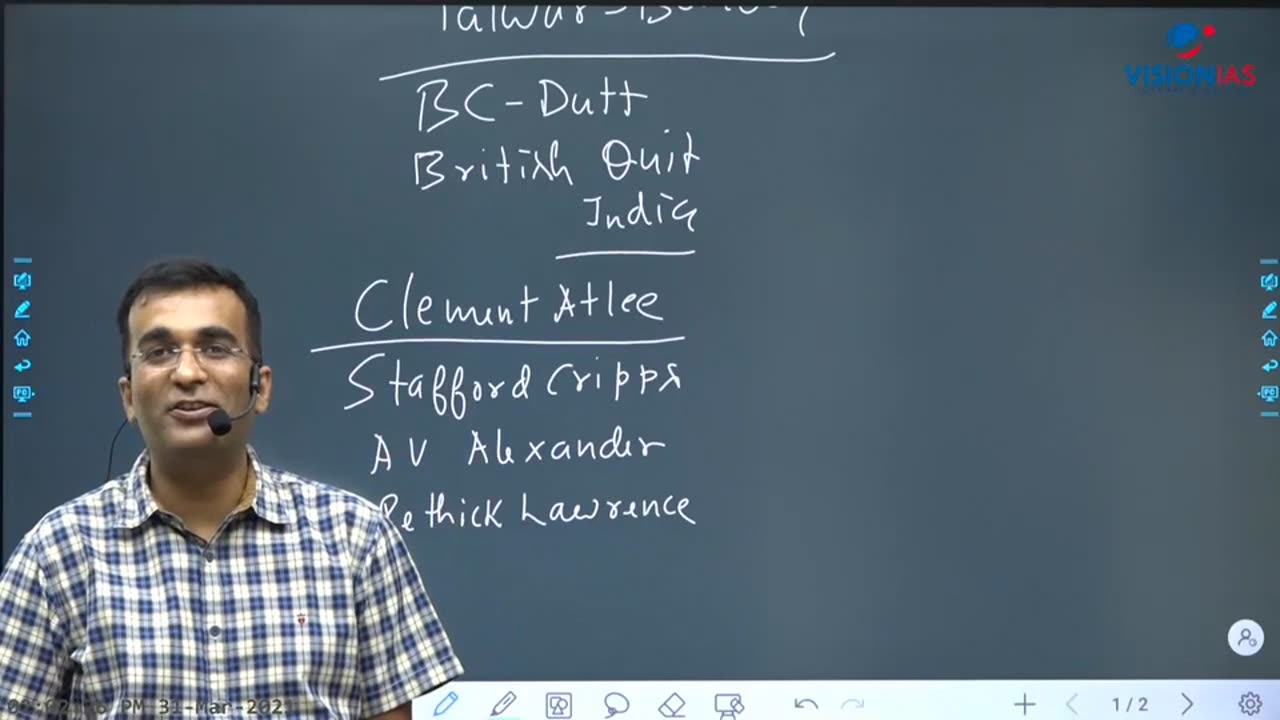 VISIONIAS
BC-Dutt
British Quit
India
Clement Atlee
Stafford Cripps
AV Alexander
Pethick Lawrence
PM 31-Mar-202
1/2